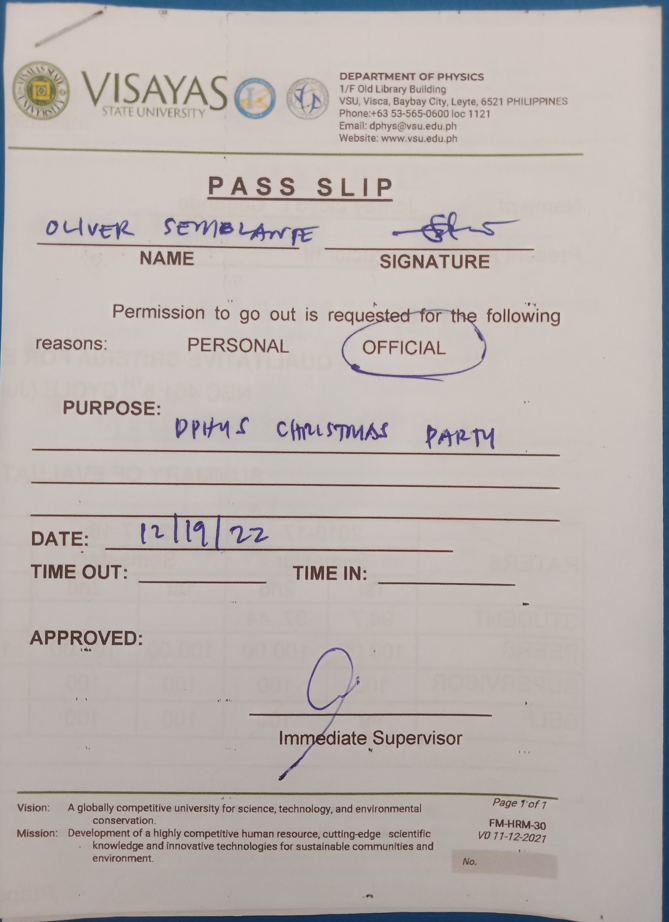 VISAYAS
STATE UNIVERSITY
DEPARTMENT OF PHYSICS
1/F Old Library Building
VSU, Visca, Baybay City, Leyte, 6521 PHILIPPINES
Phone:+63 53-565-0600 loc 1121
Email: dphys@vsu.edu.ph
Website: www.vsu.edu.ph
PASS SLIP
OLIVER SEMBLANTE
NAME SIGNATURE
Permission to go out is requested for the following
reasons: PERSONAL OFFICIAL
PURPOSE:
DPHYS CHRISTMAS PARTY
DATE: 12/19/22
TIME OUT: TIME IN:
APPROVED:
Immediate Supervisor
Vision: A globally competitive university for science, technology, and environmental
conservation.
Mission: Development of a highly competitive human resource, cutting-edge scientific
knowledge and innovative technologies for sustainable communities and
environment.
Page 1 of 1
FM-HRM-30
V0 11-12-2021
No.